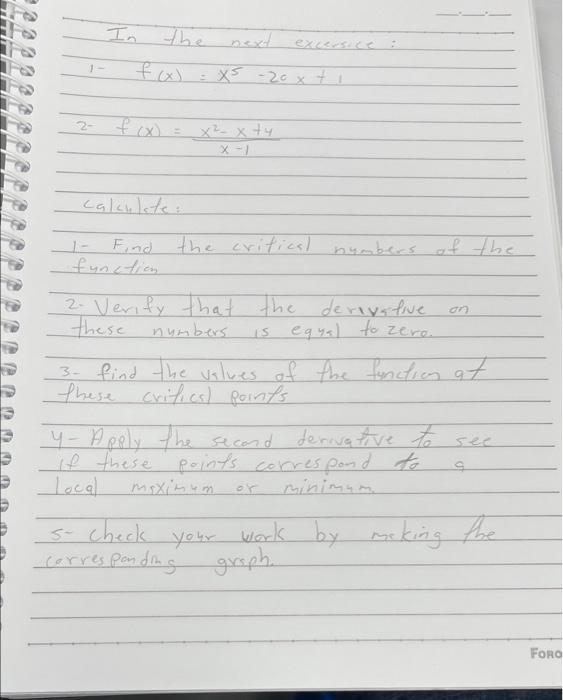 In the next excersice:
1- f(x) = x⁵ - 20x + 1
2- f(x) = x² - x + 4
x - 1
calculate:
1- Find the critical numbers of the
function
2- Verify that the derivative on
these numbers is equal to zero.
3- find the values of the function at
these critical points
4- Apply the second derivative to see
if these points correspond to a
local maximum or minimum.
5- check your work by making the
corresponding graph.
FORO